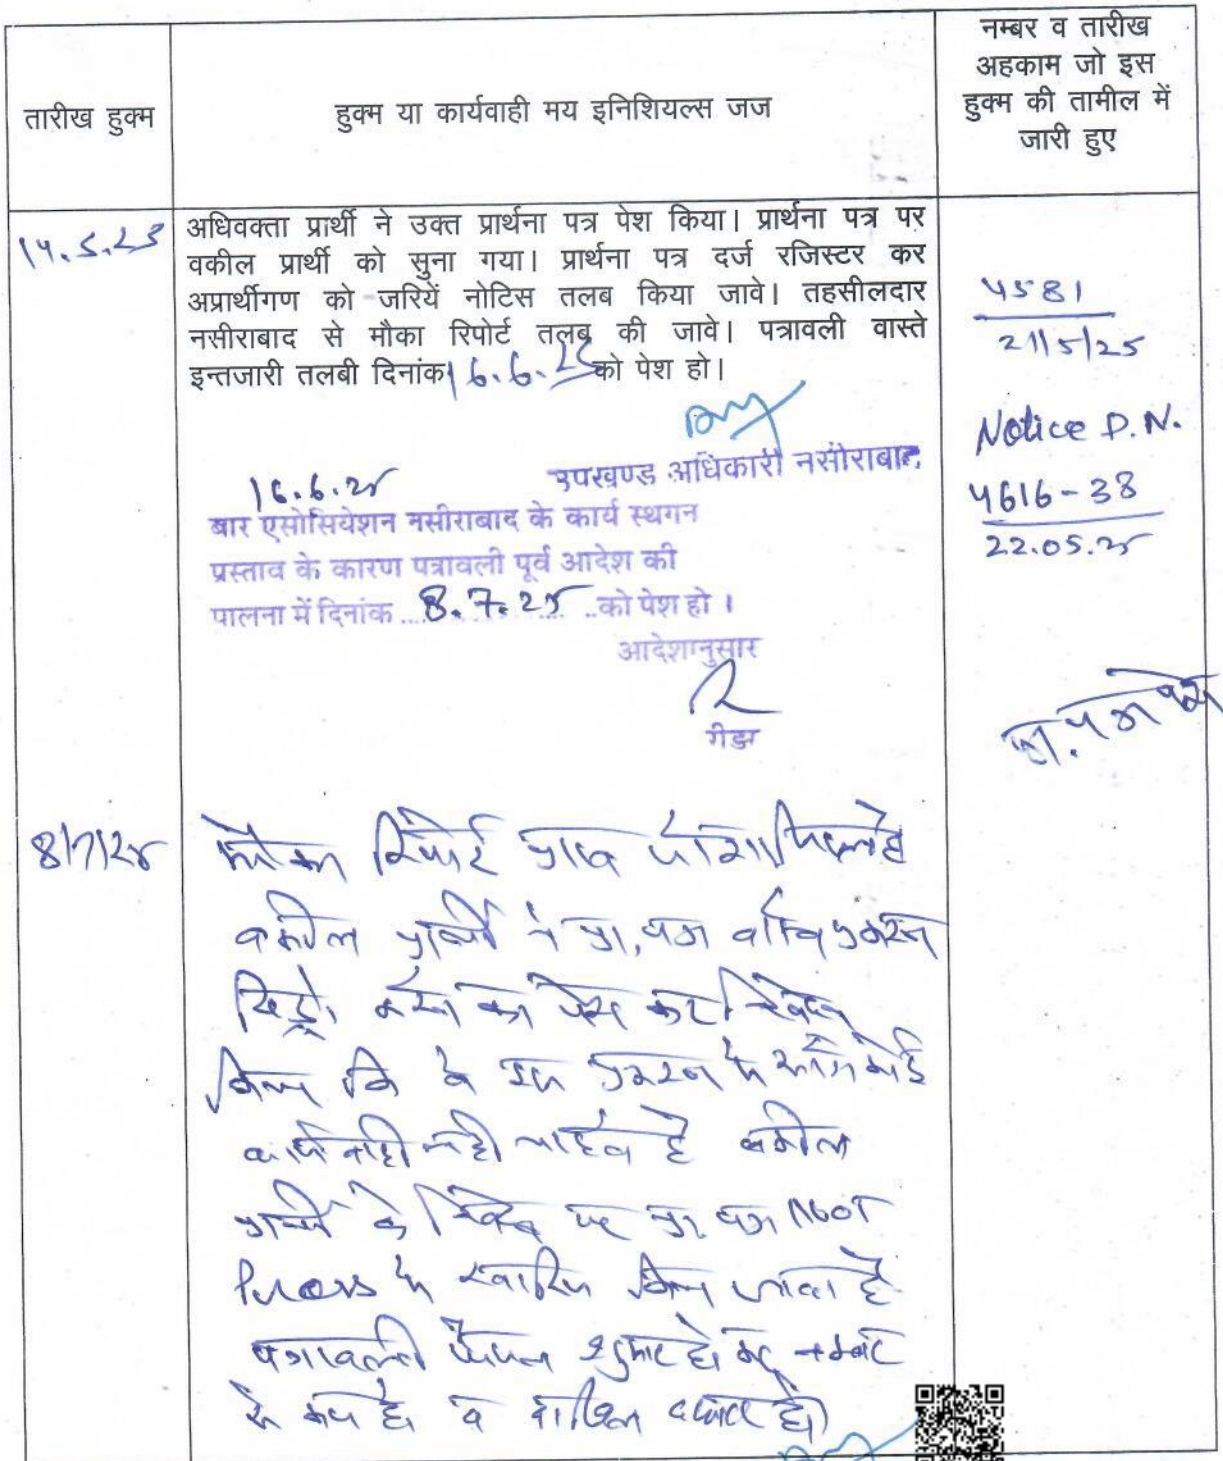 तारीख हुक्म
हुक्म या कार्यवाही मय इनिशियल्स जज
नम्बर व तारीख
अहकाम जो इस
हुक्म की तामील में
जारी हुए
14.5.25
अधिवक्ता प्रार्थी ने उक्त प्रार्थना पत्र पेश किया। प्रार्थना पत्र पर
वकील प्रार्थी को सुना गया। प्रार्थना पत्र दर्ज रजिस्टर कर
अप्रार्थीगण को जरियें नोटिस तलब किया जावे। तहसीलदार
नसीराबाद से मौका रिपोर्ट तलब की जावे। पत्रावली वास्ते
इन्तजारी तलबी दिनांक 16.6.25 को पेश हो।
उपखण्ड अधिकारी नसीराबाद
4581
21/5/25
Notice D.N.
4616-38
22.05.25
16.6.25
बार एसोसियेशन नसीराबाद के कार्य स्थगन
प्रस्ताव के कारण पत्रावली पूर्व आदेश की
पालना में दिनांक 8.7.25 को पेश हो ।
आदेशानुसार
रीडर
8/7/25
मौका रिपोर्ट प्राप्त
वकील प्रार्थी ने प्रा. पत्र प्रकरण
विड्रो करने का पेश कर निवेदन
किया कि वे इस प्रकरण में आगे कोई
कार्यवाही नही चाहते है वकील
प्रार्थी के निवेदन पर प्रा. पत्र Not
Press में खारिज किया जाता है
पत्रावली फैसल शुमार हो कर नम्बर
से कम हो व दाखिल दफ्तर हो।